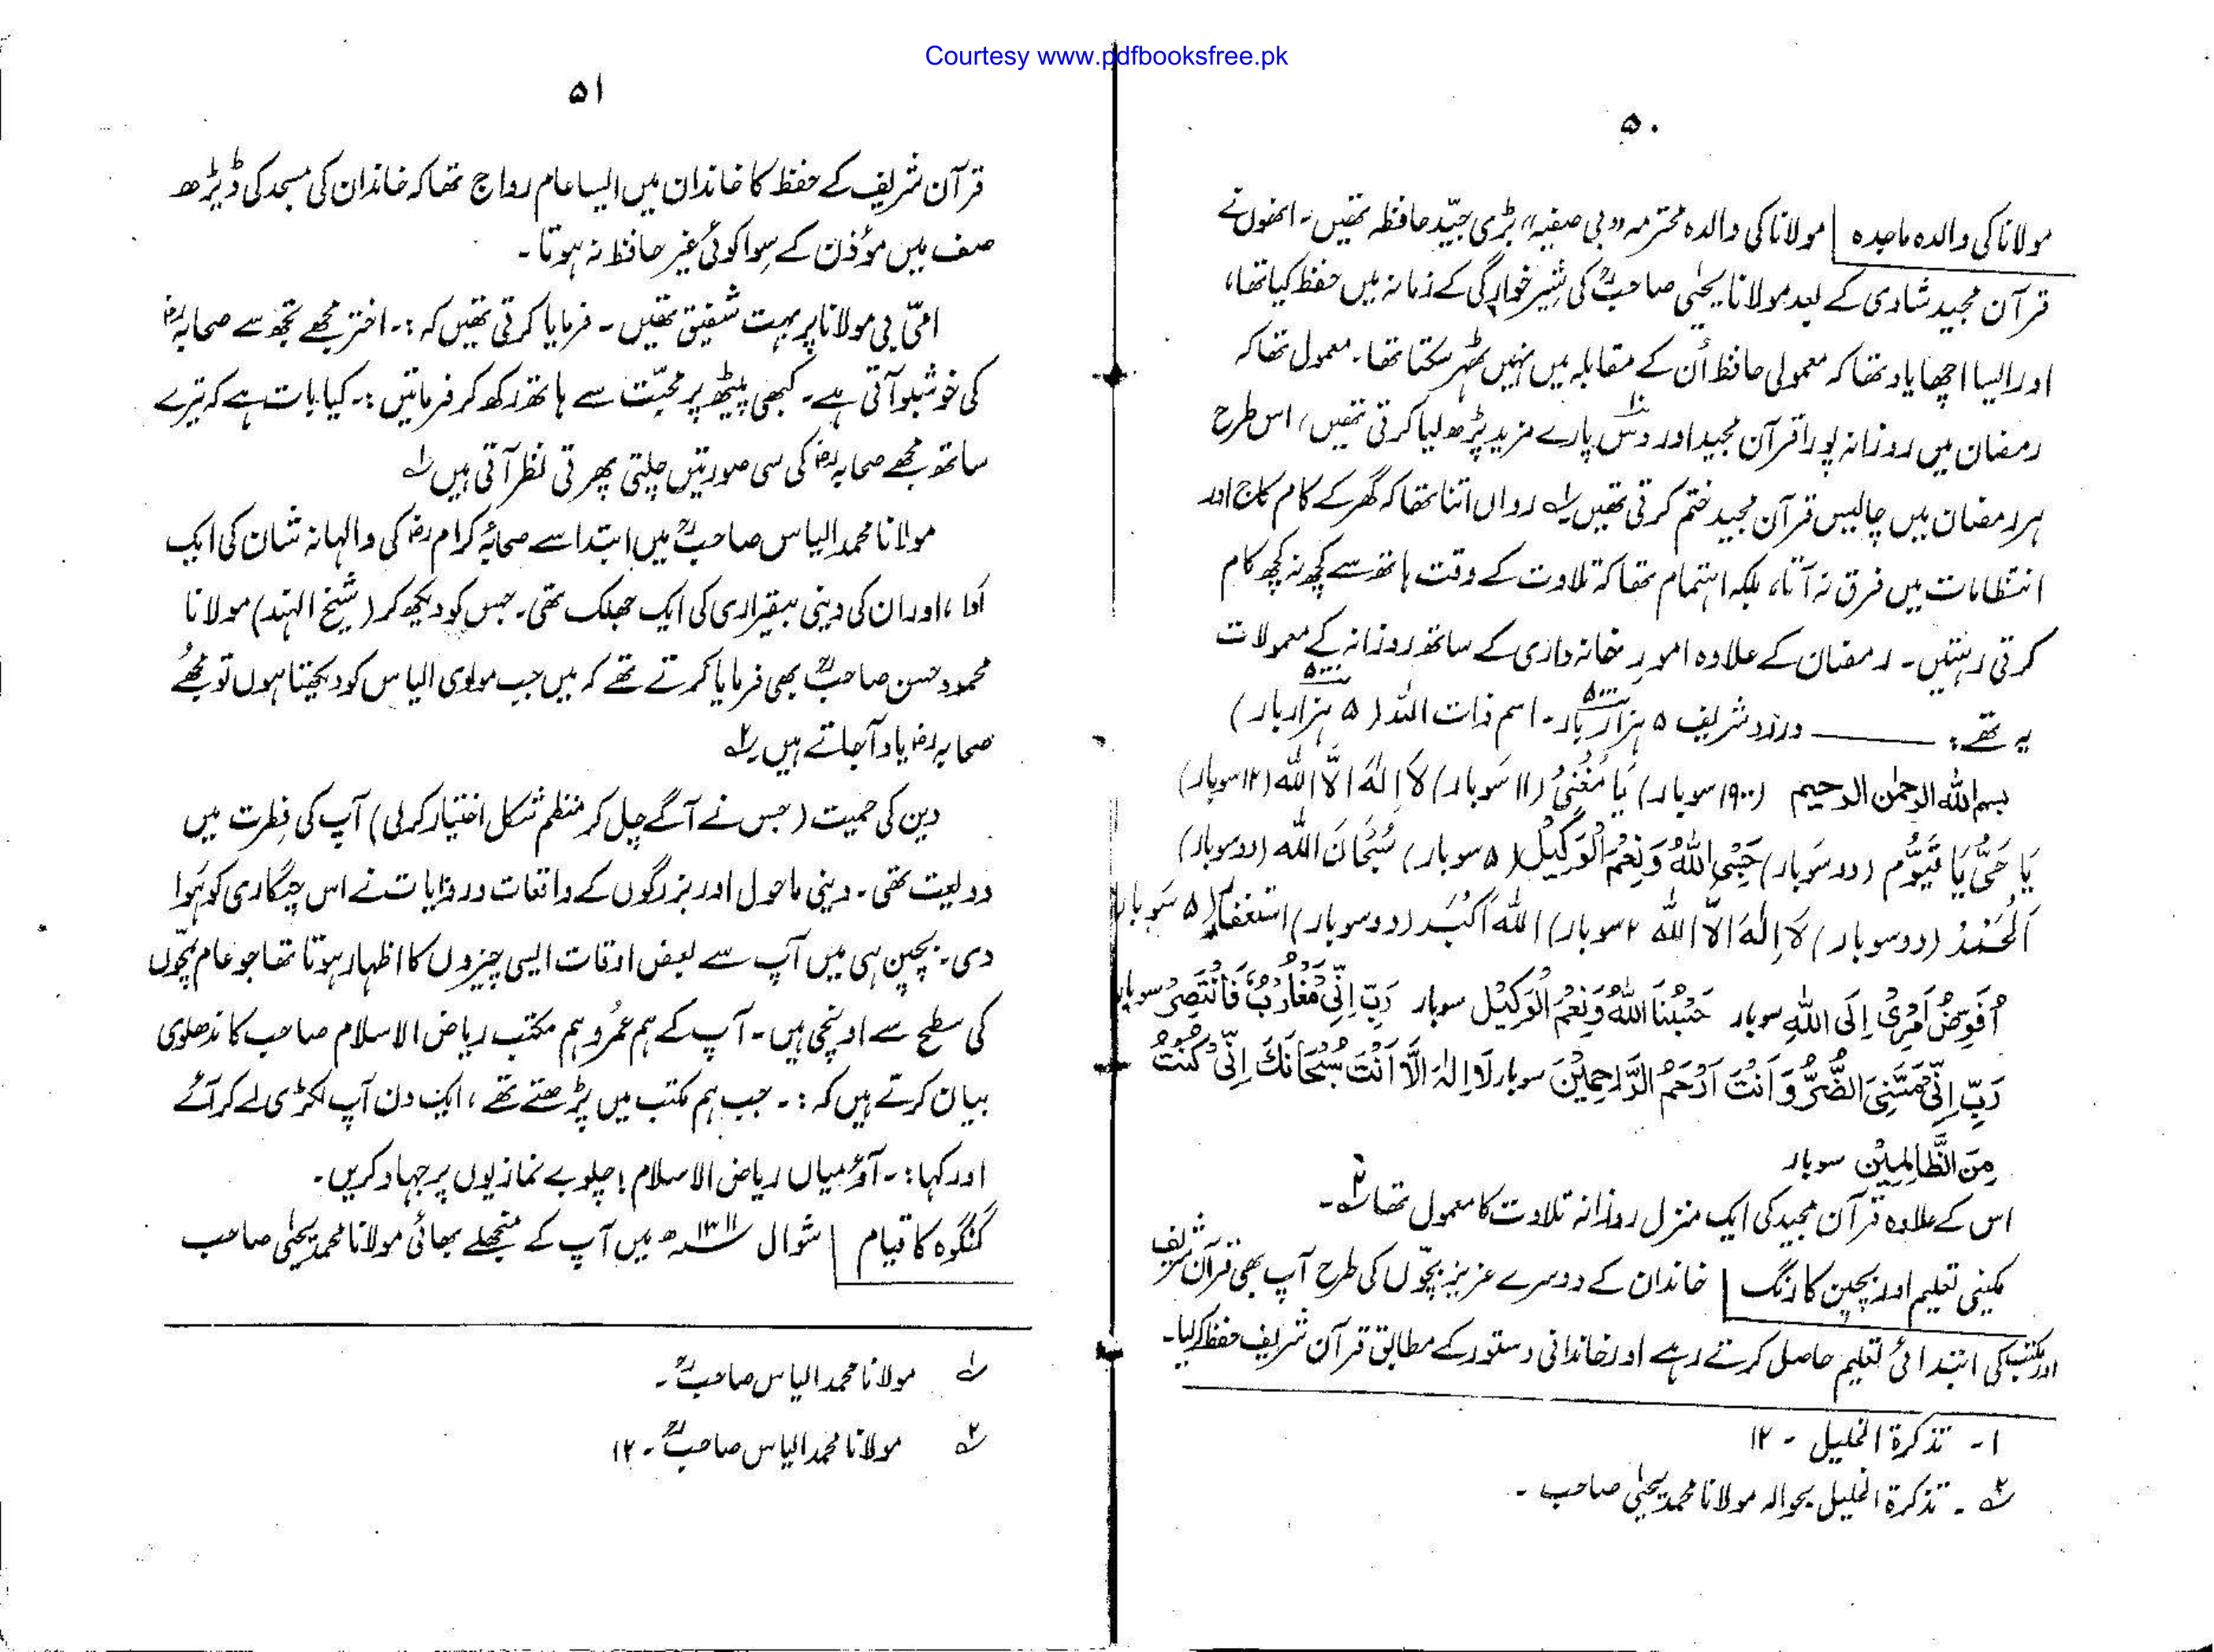 Courtesy www.pdfbooksfree.pk
۵۰
مولانا کی والدہ ماجدہ | مولانا کی والدہ محترمہ "بی صفیہ" بڑی جیّد حافظہ تھیں۔ انھوں نے
قرآن مجید شادی کے بعد مولانا یحیٰی صاحبؒ کی شیر خوارگی کے زمانہ میں حفظ کیا تھا،
اور ایسا اچھا یاد تھا کہ معمولی حافظ اُن کے مقابلہ میں نہیں ٹھہر سکتا تھا۔ معمول تھا کہ
رمضان میں روزانہ پورا قرآن مجید اور دس پارے مزید پڑھ لیا کرتی تھیں، اس طرح
ہر رمضان میں چالیس قرآن مجید ختم کرتی تھیں ۱؎ رواں اتنا تھا کہ گھر کے کام کاج اور
انتظامات میں فرق نہ آتا، بلکہ اہتمام تھا کہ تلاوت کے وقت ہاتھ سے کچھ نہ کچھ کام
کرتی رہتیں۔ رمضان کے علاوہ امورِ خانہ داری کے ساتھ روزانہ کے معمولات
یہ تھے: ——— درود شریف ۵ ہزار بار۔ اسم ذات اللہ (۵ ہزار بار)
بسم اللہ الرحمٰن الرحیم (۱۹۰۰ سو بار) یَا مُغْنِیُ (۱۱ سَو بار) لَا اِلٰہَ اِلَّا اللہ (۱۲ سوبار)
یَا حَیُّ یَا قَیُّوم (دو سَو بار) حَسْبِیَ اللہُ وَنِعْمَ الْوَکِیْل (۵ سو بار) سُبْحَانَ اللہ (دو سوبار)
اَلْحَمْدُ (دو سوبار) لَا اِلٰہَ اِلَّا اللہ ۲ سوبار) اَللہُ اَکْبَر (دو سوبار) استغفار (۵ سَو بار
اُفَوِّضُ اَمْرِیْ اِلَی اللہِ سوبار حَسْبُنَا اللہُ وَنِعْمَ الْوَکِیْل سوبار رَبِّ اِنِّیْ مَغْلُوْبٌ فَانْتَصِرْ سوبار
رَبِّ اِنِّیْ مَسَّنِیَ الضُّرُّ وَاَنْتَ اَرْحَمُ الرَّاحِمِیْنَ سوبار لَا اِلٰہَ اِلَّا اَنْتَ سُبْحَانَکَ اِنِّیْ کُنْتُ
مِنَ الظَّالِمِیْن سوبار
اس کے علاوہ قرآن مجید کی ایک منزل روزانہ تلاوت کا معمول تھا ۲؎۔
مکینی تعلیم اور بچپن کا رنگ | خاندان کے دوسرے عزیز بچّوں کی طرح آپ بھی قرآن شریف
اور مکتب کی ابتدائی تعلیم حاصل کرتے رہے اور خاندانی دستور کے مطابق قرآن شریف حفظ کرلیا۔
۱۔ تذکرۃ الخلیل ۔ ۱۲
۲؎ ۔ تذکرۃ الخلیل بحوالہ مولانا محمد یحیٰی صاحب ۔
۵۱
قرآن شریف کے حفظ کا خاندان میں ایسا عام رواج تھا کہ خاندان کی مسجد کی ڈیڑھ
صف میں مؤذن کے سِوا کوئی غیر حافظ نہ ہوتا۔
امّی بی مولانا پر بہت شفیق تھیں۔ فرمایا کرتی تھیں کہ :۔ اختر مجھے تجھ سے صحابہؓ
کی خوشبو آتی ہے۔ کبھی پیٹھ پر محبّت سے ہاتھ رکھ کر فرماتیں :۔ کیا بات ہے کہ تیرے
ساتھ مجھے صحابہؓ کی سی صورتیں چلتی پھرتی نظر آتی ہیں ۱؎
مولانا محمد الیاس صاحبؒ میں ابتدا سے صحابۂ کرامؓ کی والہانہ شان کی ایک
اَدا، اور ان کی دینی بیقراری کی ایک جھلک تھی۔ جس کو دیکھ کر (شیخ الہند) مولانا
محمود حسن صاحبؒ بھی فرمایا کرتے تھے کہ میں جب مولوی الیاس کو دیکھتا ہوں تو مجھے
صحابہؓ یاد آجاتے ہیں ۲؎
دین کی حمیت (جس نے آگے چل کر منظم شکل اختیار کرلی) آپ کی فِطرت میں
ودیعت تھی۔ دینی ماحول اور بزرگوں کے واقعات وروایات نے اس چنگاری کو ہَوا
دی۔ بچپن ہی میں آپ سے بعض اوقات ایسی چیزوں کا اظہار ہوتا تھا جو عام بچّوں
کی سطح سے اونچی ہیں۔ آپ کے ہم عُمر و ہم مکتب ریاض الاسلام صاحب کاندھلوی
بیان کرتے ہیں کہ :۔ جب ہم مکتب میں پڑھتے تھے، ایک دن آپ لکڑی لے کر آئے
اور کہا :۔ آؤ میاں ریاض الاسلام! چلو بے نمازیوں پر جہاد کریں۔
گنگوہ کا قیام | شوال ۱۳۱۱ھ میں آپ کے منجھلے بھائی مولانا محمد یحیٰی صاحب
۱؎ مولانا محمد الیاس صاحبؒ۔
۲؎ مولانا محمد الیاس صاحبؒ۔ ۱۲